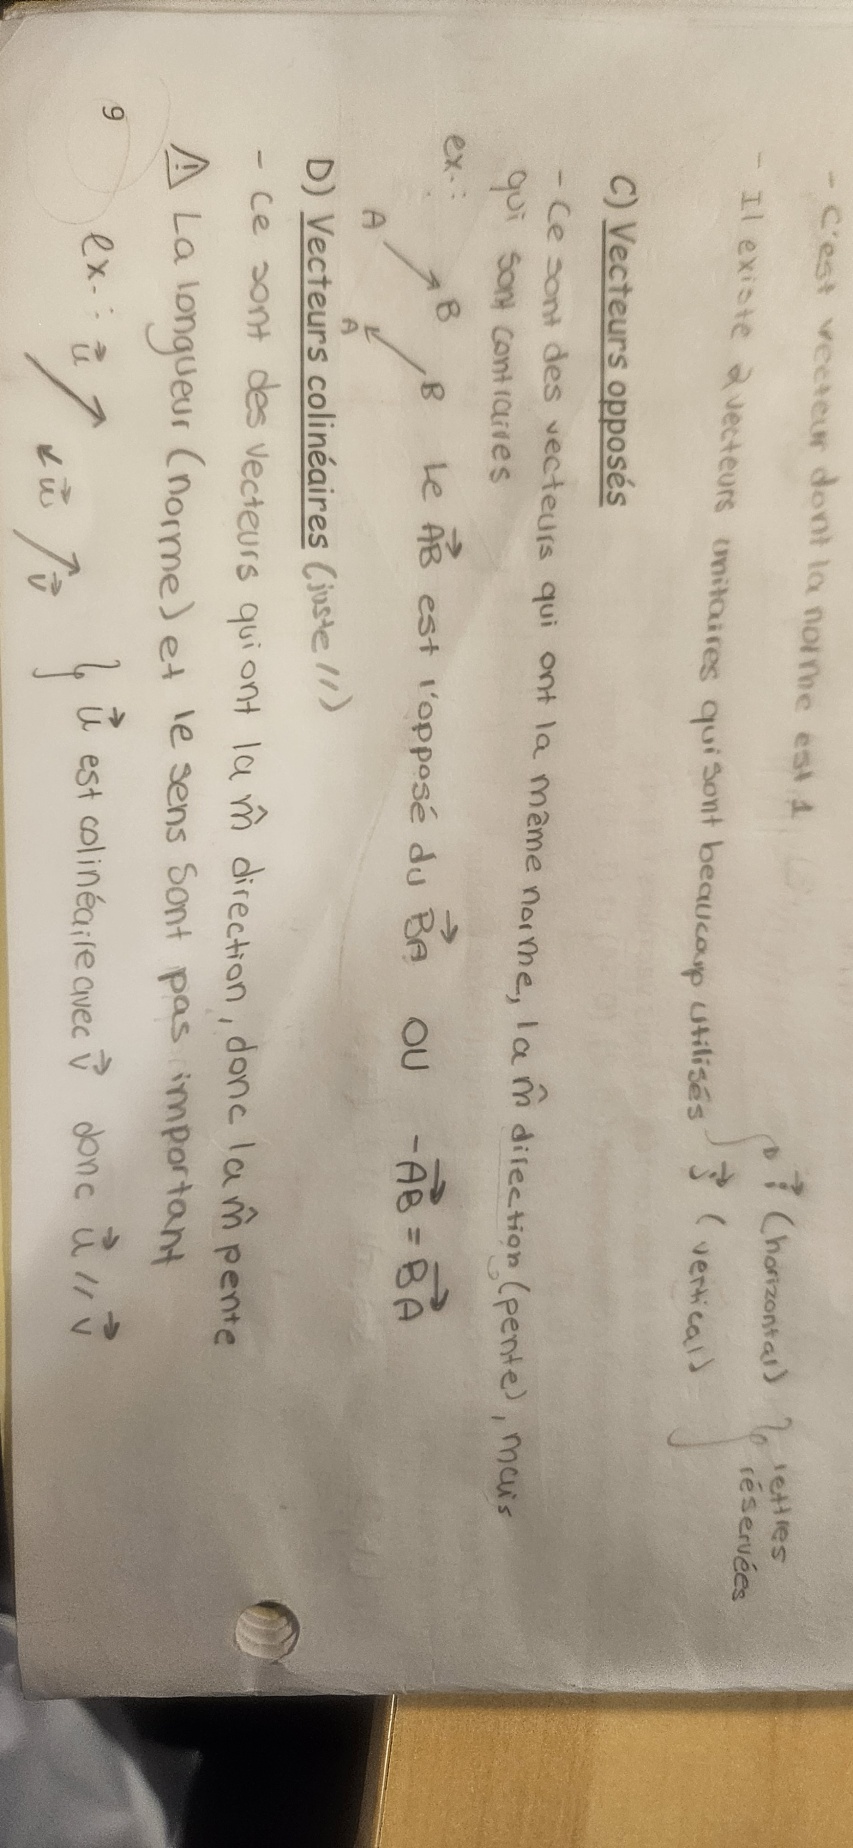 - C'est vecteur dont la norme est 1
- Il existe 2 vecteurs unitaires qui sont beaucoup utilisés
i⃗ (horizontal)
j⃗ (vertical)
lettres
réservées
C) Vecteurs opposés
- Ce sont des vecteurs qui ont la même norme, la m̂ direction (pente), mais
qui sont contraires
ex.: A B B A Le A⃗B⃗ est l'opposé du B⃗A⃗ OU -A⃗B⃗ = B⃗A⃗
D) Vecteurs colinéaires (juste //)
- Ce sont des vecteurs qui ont la m̂ direction, donc la m̂ pente
⚠ La longueur (norme) et le sens sont pas important
ex.: u⃗ w⃗ v⃗ u⃗ est colinéaire avec v⃗ donc u⃗ // v⃗
9